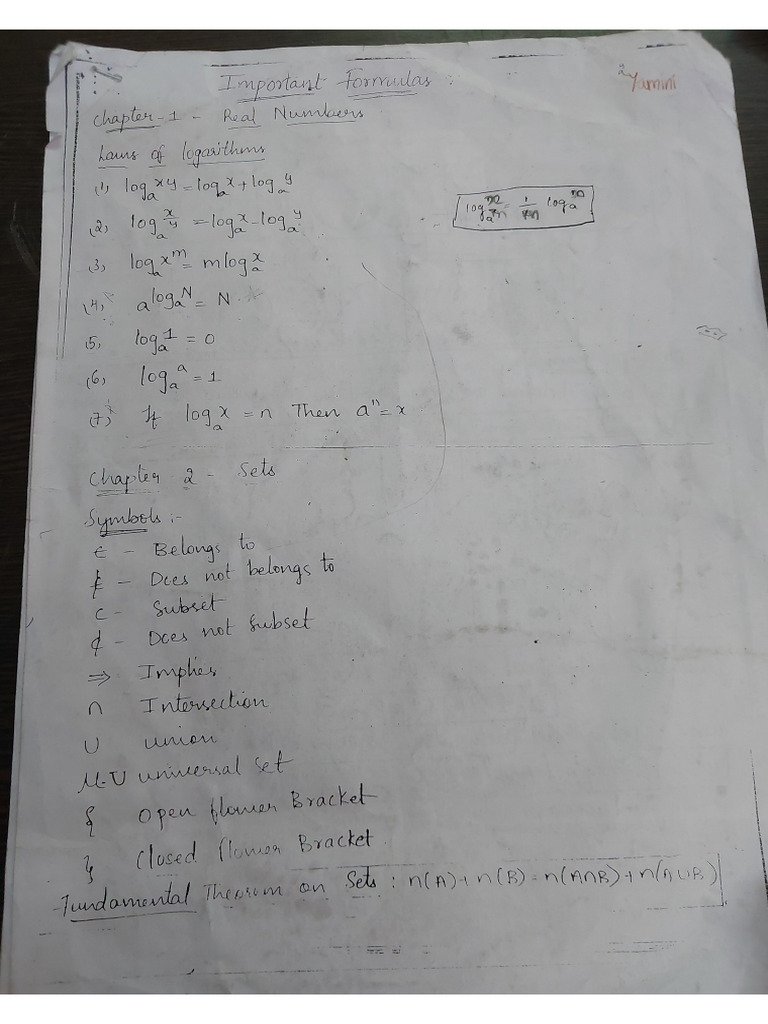 Important Formulas :
Yamini
Chapter-1 - Real Numbers
Laws of logarithms
(1) log_a^xy = log_a^x + log_a^y
(2) log_a^(x/y) = log_a^x - log_a^y
(3) log_a x^m = m log_a^x
(4) a^(log_a^N) = N
(5) log_a^1 = 0
(6) log_a^a = 1
(7) If log_a^x = n Then a^n = x
Chapter 2 - Sets
Symbols :-
∈ - Belongs to
∉ - Does not belongs to
⊂ - Subset
⊄ - Does not Subset
⇒ Implies
∩ Intersection
∪ union
μ-U universal set
{ Open flower Bracket
} Closed flower Bracket
Fundamental Theorem on Sets : n(A) + n(B) = n(A∩B) + n(A∪B)